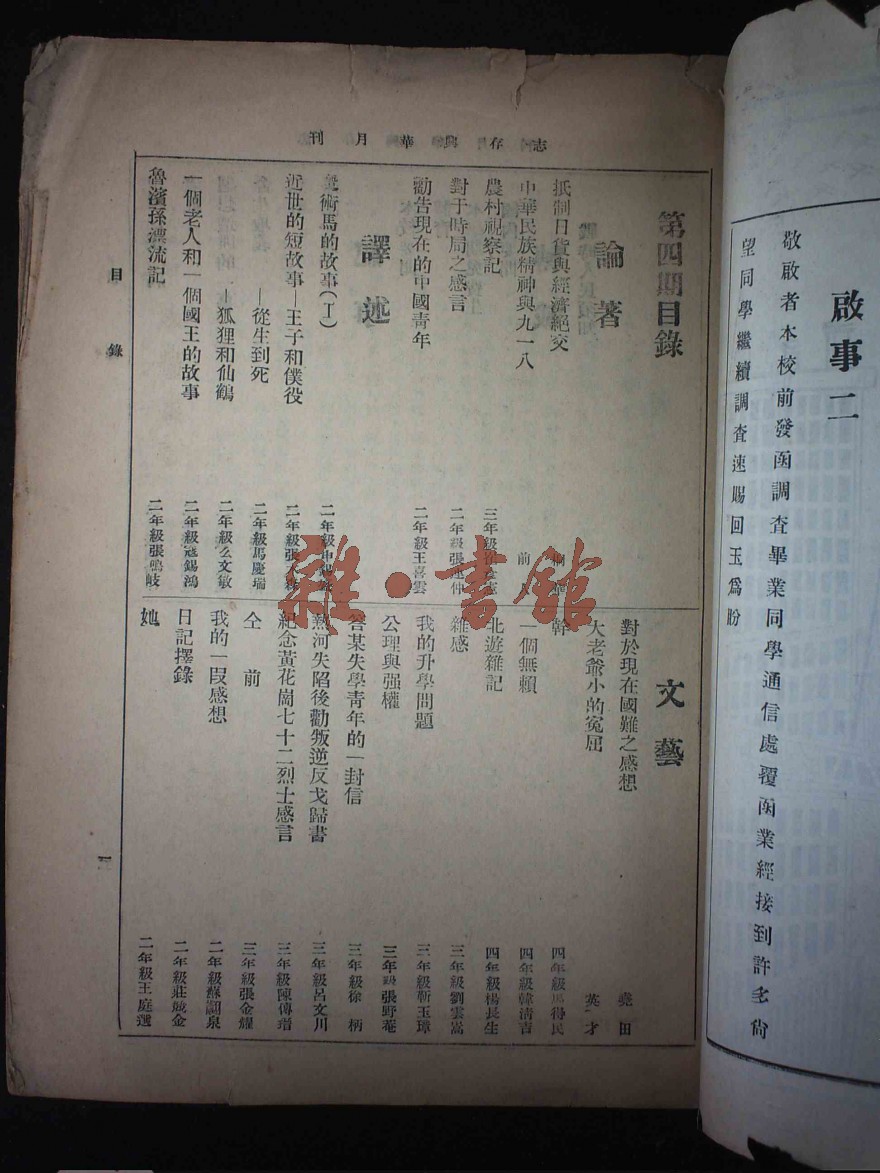 啟事二
敬啟者本校前發函調查畢業同學通信處覆函業經接到許多尙
望同學繼續調查速賜回玉爲盼
志存興華月刊
第四期目錄
論著
抵制日貨與經濟絕交
中華民族精神與九一八 前
農村視察記 三年級
對于時局之感言 二年級張連仲
勸告現在的中國青年 二年級王喜雲
譯述
術馬的故事(I) 二年級申
近世的短故事—王子和僕役 二年級張
—從生到死 二年級馬慶瑞
狐狸和仙鶴 二年級么文敏
一個老人和一個國王的故事 二年級寇錫鴻
魯濱孫漂流記 二年級張鳴岐
文藝
對於現在國難之感想 堯田
大老爺小的冤屈 英才
幹 四年級馬得民
一個無賴 四年級韓清吉
北遊雜記 四年級楊長生
雜感 三年級劉雲嵩
我的升學問題 三年級靳玉璋
公理與强權 三年級張野菴
答某失學青年的一封信 三年級徐柄
熱河失陷後勸叛逆反戈歸書 三年級呂文川
紀念黃花崗七十二烈士感言 三年級陳傳瑨
仝前 三年級張金耀
我的一段感想 二年級蘇顯泉
日記擇錄 二年級莊璥金
她 二年級王庭選
目錄
一
雜·書館